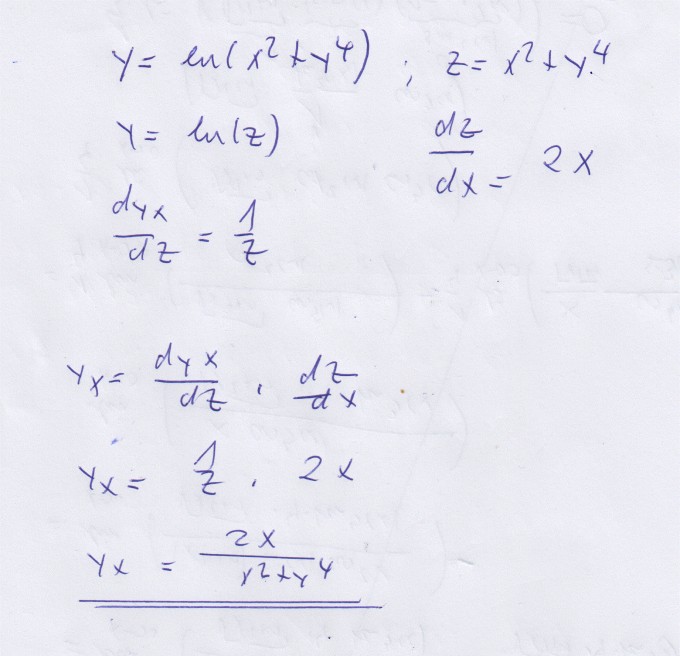 y = ln(x²+y⁴) ; z = x²+y⁴
y = ln(z) dz/dx = 2x
dyx/dz = 1/z
yx = dyx/dz . dz/dx
yx = 1/z . 2x
yx = 2x/x²+y⁴